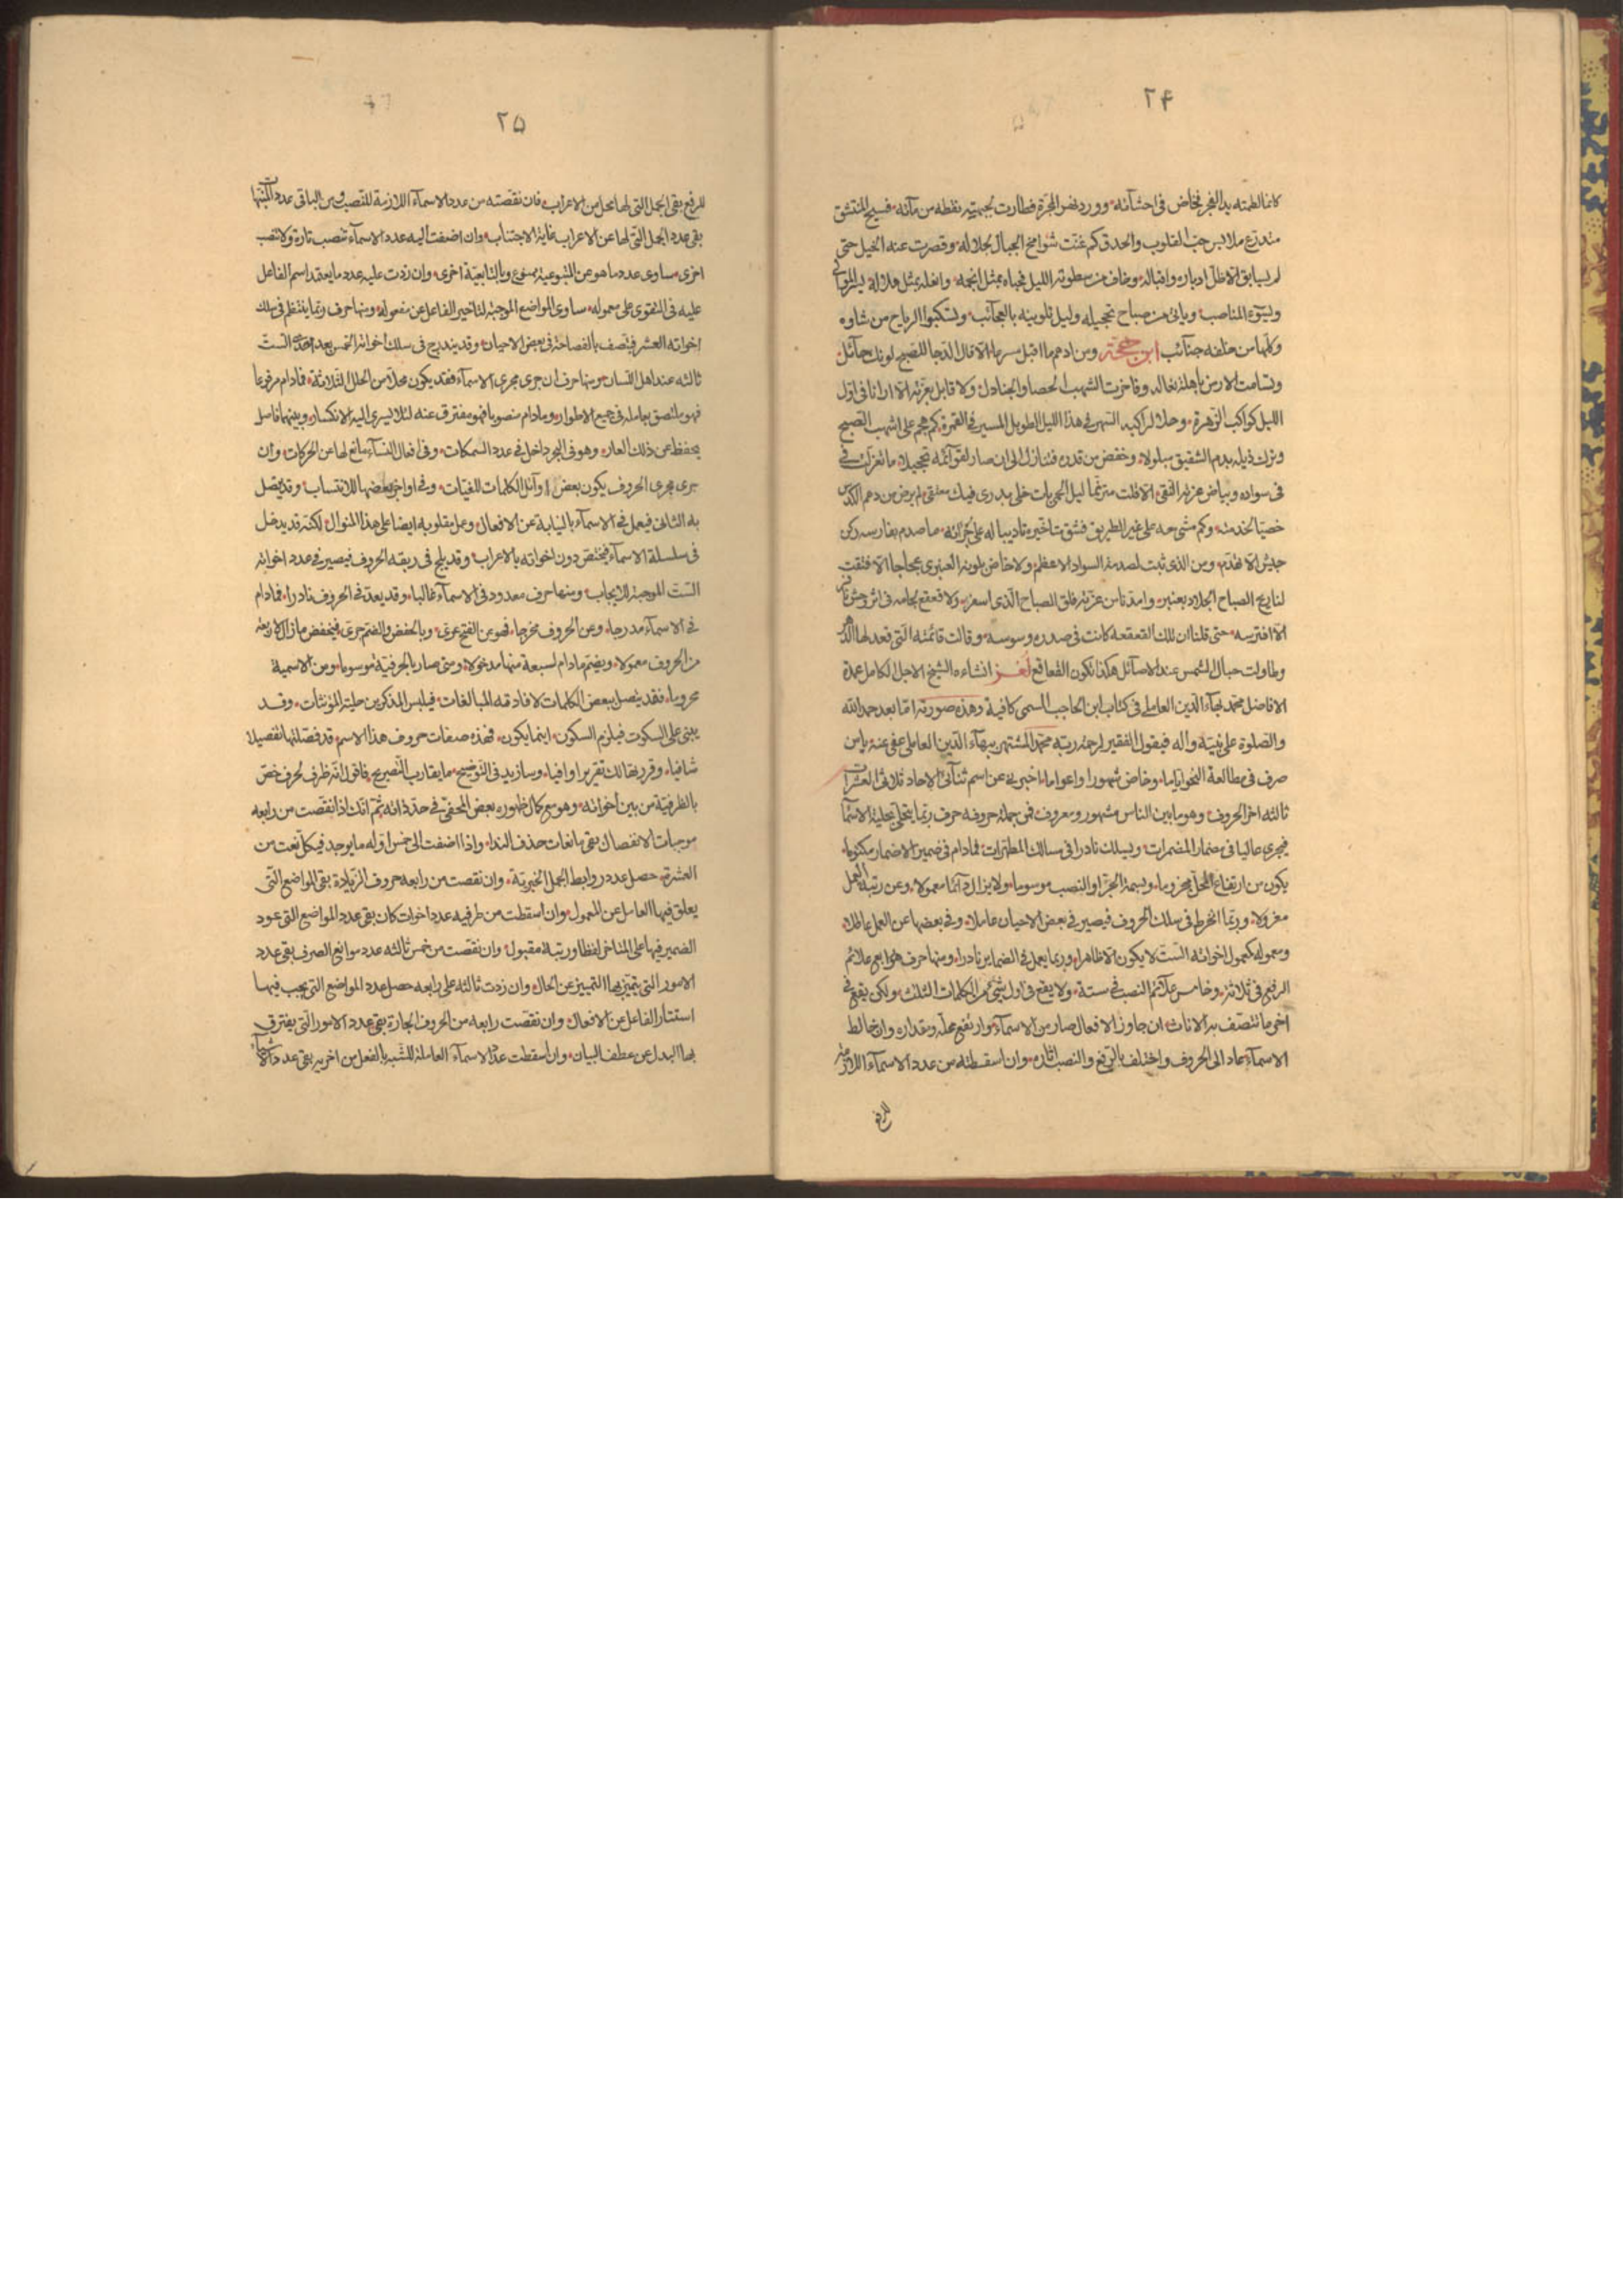 ٢۴
كانما لطمته يد الفجر فخاض فى احشائه وورد نهر المجرة فطارت لجبهته نقطة من مائه فسبح المنتشق
متدرع ملابس حب القلوب والحدق كم عنت شوامخ الجبال لجلاله وقصرت عنه الخيل حتى
لم يسابق الا ظل ادباره واقباله وخاف من سطوته الليل فحباه بمثل انجمه وانعله بمثل هلاله
ويتبوء المناصب ويأتى من صباح تحجيله وليل تلوينه بالعجائب وتستكبوا الرياح من شاوه
وكلها من خلفه جنائب ابن حجة ومن ادهم ما اقبل مسرجا الا قال الدجا للصبح لونك حائل
وتسامت الارض باهلة نعاله وفاخرت الشهب الحصا والجنادل ولا قابل بغرته الا ارانا فى اول
الليل كواكب الزهرة وحلا لراكبه السهر فى هذا الليل الطويل المسير فى القمرة كم هجم على اشهب الصبح
وترك ذيله بدم الشفيق مبلولا وخفض من قدره فتنازل الى ان صار لقوائمه تحجيلا ما تغزلت
فى سواده وبياض غرته النقى الا قلت مترنما ليل الحمى بات خلى بدرى فيك معتنقى لم يرض من دهم
خصيا لخدمته وكم مشى حه على غير الطريق فشق تاديبا له على جرائه ما صدم بفارسه ركن
جيش الا تهدم ومن الذى ثبت لصدمة السواد الاعظم ولا خاض بلونه العنبرى عجاجا الا فتقت
لنا ريح الصباح الجلاد بعنبر وامدنا من غرته فلق الصباح الذى اسفر ولا قعقع لجامه فى اثر وحش
الا افترسه حتى قلنا ان تلك القعقعه كانت فى صدره وسوسه وقالت قائمته التى قعد لها
وطاولت حبال الشمس عند الاصائل هكذا تكون القعاقع لغز انشاءه الشيخ الاجل الكامل عمدة
الافاضل محمد بهاء الدين العاملى فى كتاب ابن الحاجب المسمى كافية وهذه صورته اما بعد حمد الله
والصلوة على نبيه وآله فيقول الفقير لرحمة ربه محمد المشتهر ببهاء الدين العاملى عفى عنه يا من
صرف فى مطالعة النحو اياما وخاض شهورا واعواما اخبرنى عن اسم ثنائى الاحاد ثلاثى العشرات
ثالثه اخر الحروف وهو ما بين الناس مشهور ومعروف فمن جملة حروفه حرف ربما يتحلى بحلية الاسماء
فيجرى عاليا فى مضمار المضمرات ويسلك نادرا فى مسالك المظهرات فمادام فى ضمير الاضمار مكتوما
يكون من ارتفاع المحل محروما وبسمة الجر او النصب موسوما ولا يزال دائما معمولا وعن رتبة العمل
معزولا وربما انخرط فى سلك الحروف فيصير فى بعض الاحيان عاملا وفى بعضها عن العمل عاطلا
ومعموله كمعمول اخواته الست لا يكون الا ظاهرا وربما يعمل فى الضماير نادرا ومنها حرف هو رابع علائم
الرفع فى ثلاثة وخامس علائم النصب فى ستة ولا يقع فى اول شئ من الكلمات الثلث ولكن يقع فى
اخر ما تتصف به الاناث ان جاوز الافعال صار من الاسماء وارتفع محله ومقداره وان خالط
الاسماء عاد الى الحروف واختلف بالرفع والنصب اثاره وان اسقطته من عدد الاسماء اللازمة
للرفع
٢۵
للرفع بقى الجمل التى لها محل من الاعراب فان نقصته من عدد الاسماء اللازمة للنصب ومن الباقى عدد
بقى عدد الجمل التى لها عن الاعراب غاية الاجتناب وان اضفت اليه عدد الاسماء تنصب تارة ولا تنصب
اخرى ساوى عدد ما هو عن المتبوعية ممنوع وبالتابعية اخرى وان زدت عليه عدد ما يعتمد اسم الفاعل
عليه فى التقوى على معموله ساوى المواضع الموجبة لتاخير الفاعل عن مفعوله ومنها حرف ربما ينتظم فى سلك
اخواته العشر فيتصف بالفصاحة فى بعض الاحيان وقد يندرج فى سلك اخواته الخمس بعد احدى الست
ثالثه عند اهل اللسان ومنها حرف ان جرى مجرى الاسماء فقد يكون محلا من الحلل الثلاثة فمادام مرفوعا
فهو ملتصق بعامله فى جميع الاطوار ومادام منصوبا فهو مفترق عنه لئلا يسرى اليه الانكسار وبينهما فاصل
يحفظ عن ذلك العار وهو فى البحور داخل فى عدد السمكات وفى افعال النساء مانع لها عن الحركات وان
جرى مجرى الحروف يكون بعض اوائل الكلمات للغيبات وفى اواخر بعضها للانتساب وقد يتصل
به الثانى فيعمل فى الاسماء بالنيابة عن الافعال وعمل مقلوبه ايضا على هذا المنوال لكنه قد يدخل
فى سلسلة الاسماء فيختص دون اخواته بالاعراب وقد يلج فى ربقه الحروف فيصير فى عدد اخواته
الست الموجبة للايجاب ومنها حرف معدود فى الاسماء غالبا وقد يعد فى الحروف نادرا فمادام
فى الاسماء مدرجا وعن الحروف مخرجا فهو عن الفتح عرى وبالخفض والضم حرى فيخفض مازال الاربعة
من الحروف معمولا ويضم مادام لسبعة منها مدخولا ومتى صار بالحرفية موسوما ومن الاسمية
محروما فقد يتصل ببعض الكلمات لافادته المبالغات فيلبس المذكرين حلية المؤنثات وقد
يبنى على السكوت فيلزم السكون اينما يكون فهذه صفات حروف هذا الاسم قد فصلتها تفصيلا
شافيا وقررتها لك تقريرا وافيا وسازيد فى التوضيح ما يقارب التصريح فاقول انه ظرف لحرف خص
بالظرفية من بين اخواته وهو مع كمال ظهوره بعض المخفى فى حد ذاته ثم انك اذا نقصت من رابعه
موجبات الانفصال بقى مانعات حذف النداء واذا اضفت الى خمس اوله ما يوجد فى كل نعت من
العشرة حصل عدد روابط الجمل الخبرية وان نقصت من رابعه حروف الزيادة بقى المواضع التى
يعلق فيها العامل عن المعمول وان اسقطت من طرفيه عدد اخوات كان بقى عدد المواضع التى عود
الضمير فيها على المتاخر لفظا ورتبة مقبول وان نقصت من خمس ثالثه عدد موانع الصرف بقى عدد
الامور التى يتميز بها التمييز عن الحال وان زدت ثالثه على رابعه حصل عدد المواضع التى يجب فيها
استتار الفاعل عن الافعال وان نقصت رابعه من الحروف الجارة بقى عدد الامور التى يفترق
بها البدل عن عطف البيان وان اسقطت عدد الاسماء العاملة للشبه بالفعل من اخريه بقى عدد